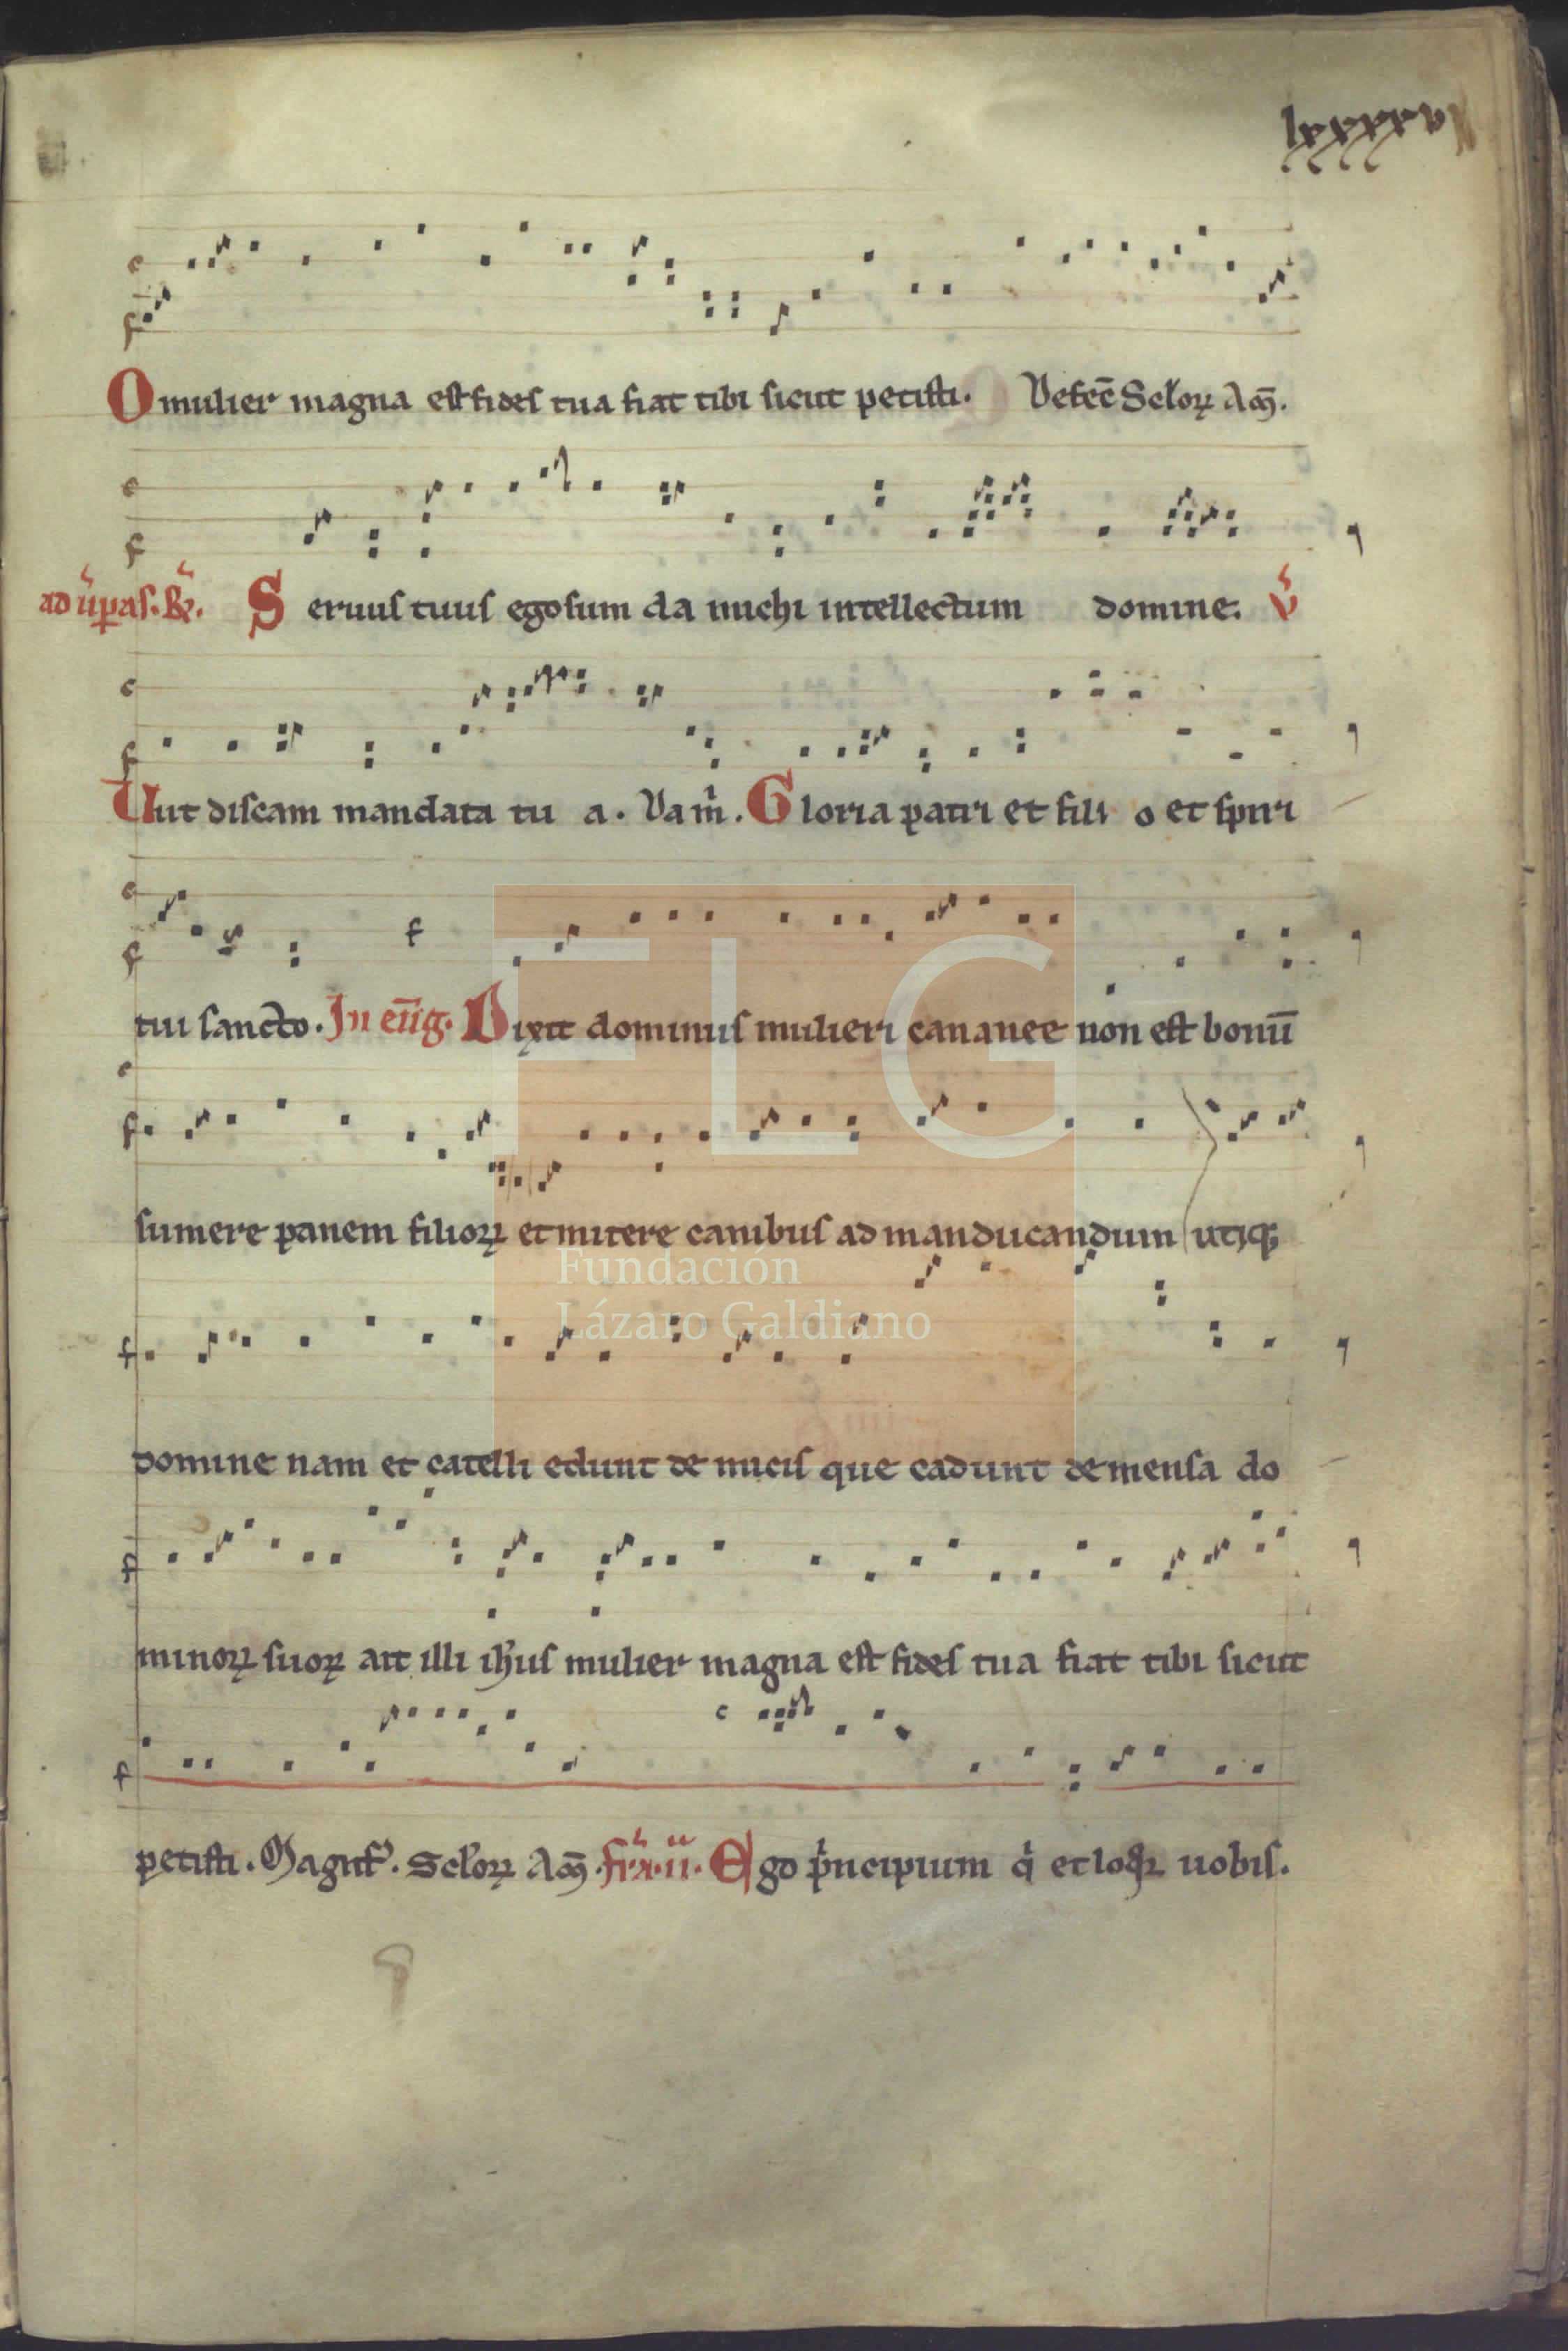 lxxxxv
O mulier magna est fides tua fiat tibi sicut petisti. Sclorꝝ Am̄.
ad ùꝑas. R. Seruus tuus ego sum da michi intellectum domine. V
Uut discam mandata tu a. Da m̍. Gloria patri et fili o et spiri
tui sancto. In eūg. Dixit dominus mulieri cananee non est bonū
sumere panem filiorꝝ et mitere canibus ad manducandum utiqꝫ
domine nam et catelli edunt de micis que cadunt de mensa do
minorꝝ suorꝝ ait illi ih̄us mulier magna est fides tua fiat tibi sicut
petisti. Magnif̍. Sclorꝝ Am̄. fr̍a. ii. Ego p̍ncipium q̍ et loqꝝ uobis.
FLG
Fundación
Lázaro Galdiano